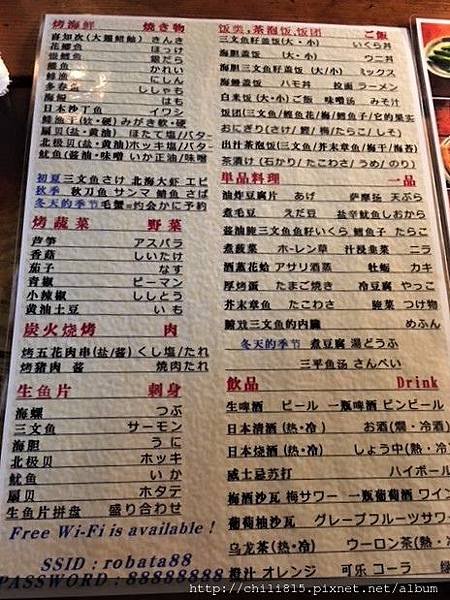 烤海鲜 焼き物
喜知次(大翅鲪鲉) きんき
花鲫鱼 ほっけ
银鳕鱼 銀だら
鲽鱼 かれい
鲱渔 にしん
多春鱼 ししゃも
海鳗 はも
日本沙丁鱼 イワシ
鲱渔干(软·硬)みがき軟·硬
扇贝(盐·黄油) ほたて塩/バター
北极贝(盐·黄油)ホッキ塩/バター
鱿鱼(酱油·味噌) いか正油/味噌
初夏 三文鱼さけ 北海大虾 エビ
秋季 秋刀鱼 サンマ 鲭鱼 さば
冬天的季节 毛蟹=约会かに予約
烤蔬菜 野菜
芦笋 アスパラ
香菇 しいたけ
茄子 なす
青椒 ピーマン
小辣椒 ししとう
黄油土豆 いも
炭火烧烤 肉
烤五花肉串(盐/酱)くし塩/たれ
烤猪肉 酱 焼肉たれ
生鱼片 刺身
海螺 つぶ
三文鱼 サーモン
海胆 うに
北极贝 ホッキ
鱿鱼 いか
扇贝 ホタテ
生鱼片拼盘 盛り合わせ
Free Wi-Fi is available !
SSID : robata88
PASSWORD : 88888888
饭类,茶泡饭,饭团 ご飯
三文鱼籽盖饭(大·小) いくら丼
海胆盖饭 (大·小) ウニ丼
海胆三文鱼籽盖饭 (大/小) ミックス
海鳗盖饭 ハモ丼 拉面 ラーメン
白米饭(大·小)ご飯 味噌汤 みそ汁
饭团(三文鱼/鲣鱼花/梅/鳕鱼子/它的果实
おにぎり(さけ/鰹/梅/たらこ/しそ)
出汁茶泡饭(三文鱼/芥末章鱼/梅干/海苔)
茶漬け(石かり/たこわさ/うめ/のり)
单品料理 一品
油炸豆腐片 あげ 萨摩扬 天ぷら
煮毛豆 えだ豆 盐辛鱿鱼しおから
酱油腌三文鱼鱼籽いくら 鳕鱼子 たらこ
煮菠菜 ホーレン草 汁浸韭菜 ニラ
酒蒸花蛤 アサリ酒蒸 牡蛎 カキ
厚烤蛋 たまご焼き 冷豆腐 やっこ
芥末章鱼 たこわさ 腌菜 つけ物
腌渍三文鱼的内臓 めふん
冬天的季节 煮豆腐 湯どうふ
三平鱼汤 さんぺい
飲品 Drink
生啤酒 ビール 一瓶啤酒 ビンビール
日本清酒(热·冷) お酒(燗·冷酒)
日本烧酒(热·冷) しょう中(熱·冷
威士忌苏打 ハイボール
梅酒沙瓦 梅サワー 一瓶葡萄酒 ワイン
葡萄柚沙瓦 グレープフルーツサワー
乌龙茶(热·冷) ウーロン茶(熱·冷
橙汁 オレンジ 可乐 コーラ
http://chili815.pixnet.net/album